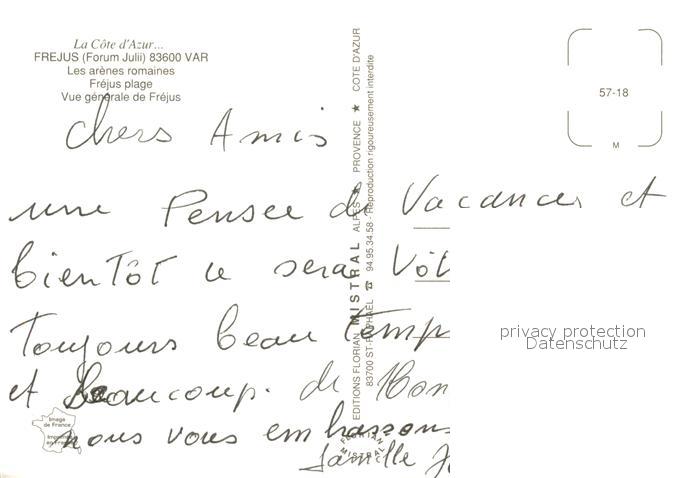 La Côte d'Azur...
FREJUS (Forum Julii) 83600 VAR
Les arènes romaines
Fréjus plage
Vue générale de Fréjus
57-18
M
EDITIONS FLORIAN MISTRAL ALPES ★ PROVENCE ★ COTE D'AZUR
83700 ST-RAPHAËL ☎ 94.95.34.58 - Reproduction rigoureusement interdite
Chers Amis
une Pensee de Vacances et
bientôt ce sera Vôt
Toujours beau temp
et Beaucoup. de Mon
nous vous embrassons
famille
privacy protection
Datenschutz
Image
de France
Imprimé
en France
FLORIAN
MISTRAL